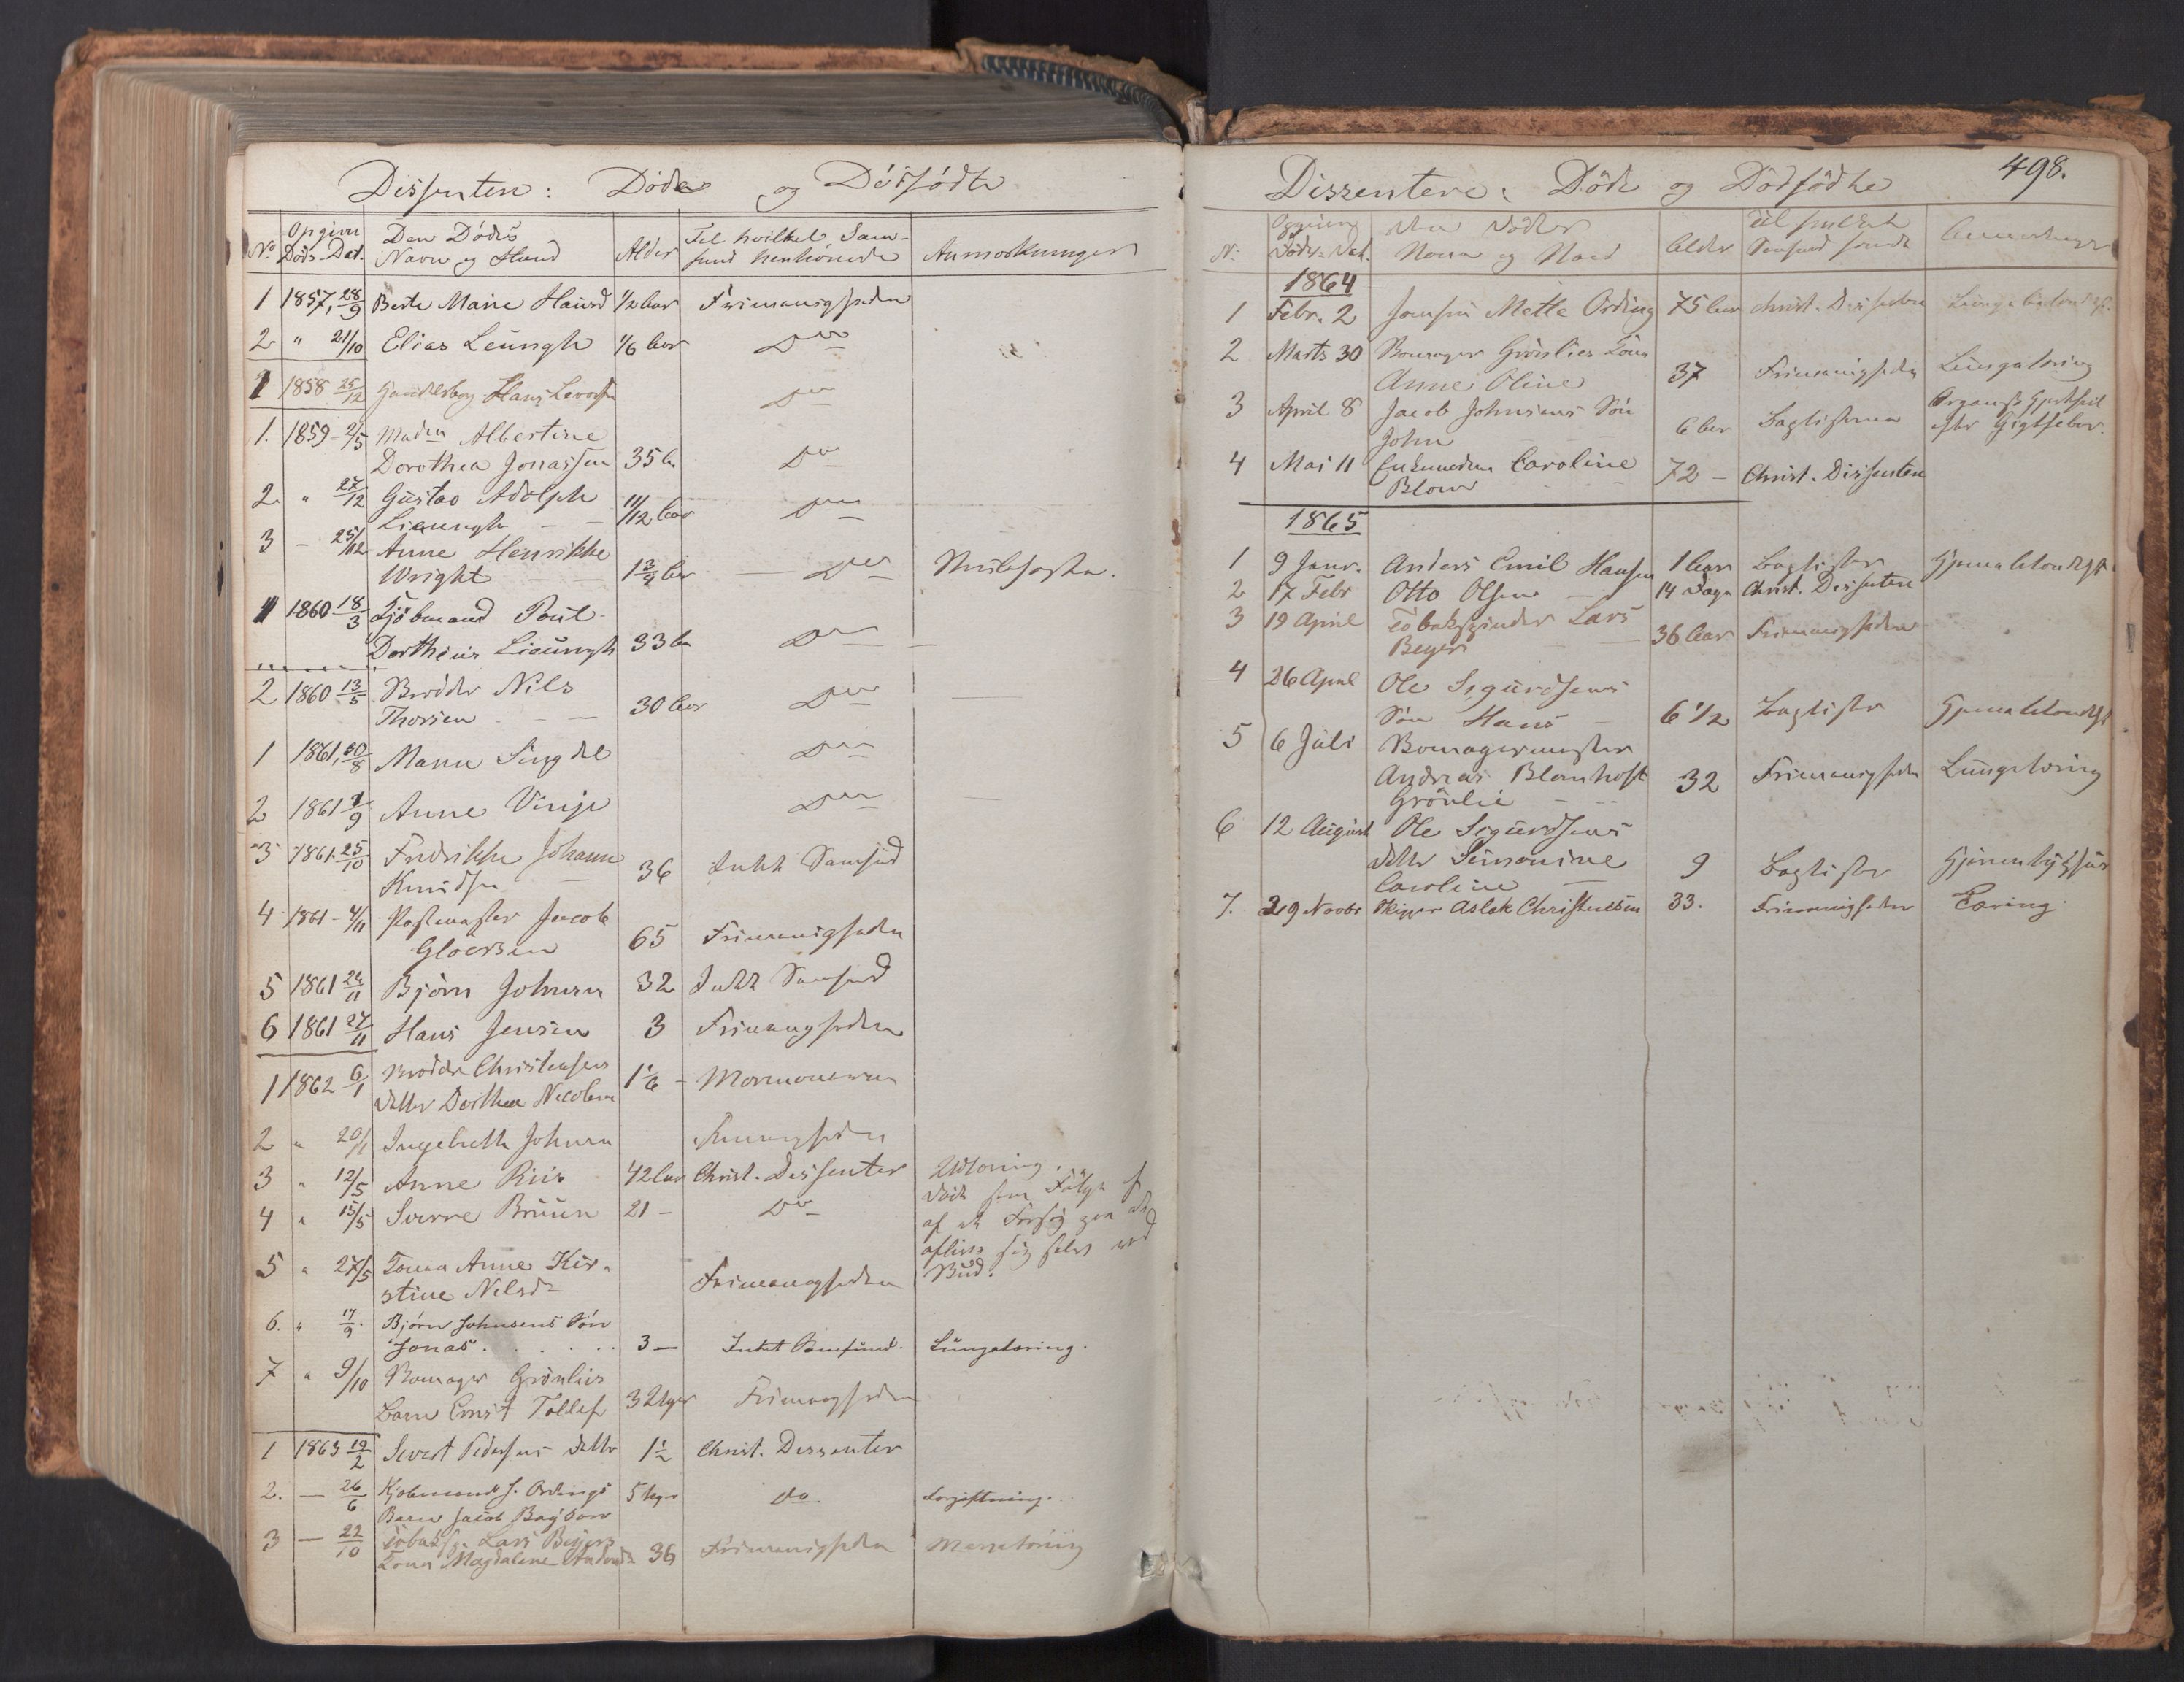 Dissenter: Døde og Dødfødte
No
Opgiven
Døds-Dat.
Den Dødes
Navn og Stand
Alder
Til hvilket Sam-
fund henhörende
Anmærkninger
1 1857, 28/9 Berte Marie Hansd 1/2 Aar Frimenigheden
2 " 21/10 Elias Leüngh 1/6 Aar Do
1 1858 25/12 Hans Do
1. 1859 - 2/5 Madm Albertine
Dorothea Jonassen 35 A Do
2 " 27/12 Güstav Adolph
11/12 Aar Do
3 - 25/12 Anne Henrikke
Wright 1 3/4 Aar Do
1 1860 18/3 Kjöbmand Poül
Dorthius Lieüngh 33 A Do
2 1860 13/5 Bröder Nils
Thorsen 30 Aar Do
1 1861, 30/8 Do
2 1861 1/9 Anne Vinje Do
3 1861. 25/10 Fredrikke Johanne
Knüdsen 36 Intet Samfund
4 1861 - 4/11 Postmester Jacob
Gloersen 65 Frimenigheden
5 1861 24/11 Björn Johnsen 32 Intet Samfund
6 1861 27/11 Hans Jensen 3 Frimenigheden
1 1862 6/1 Christensens
Datter Dorthea Nicoline 1 1/6 - Mormonerne
2 " 20/1 Ingebreth Johnsen Frimenigheden
3 " 12/5 Anne Riis 42 Aar Christ. Dissenter Udtæring.
4 " 15/5 Sverre Brüün 21 - Do Död som Fölge
af et Forsög paa at
aflive sig selv ved
5 " 27/5 Anne Kir-
stine Nilsd Frimenigheden
6. " 17/9. Björn Johnsens Sön
Jonas. 3 - Intet Samfünd. Lüngetæring.
7 " 9/10 Grönlies
Barn Ernst Tollef 3 Uger Frimenigheden
1 1863 19/2 Sivert Pedersens Datter 1 1/2 Christ. Dissenter
2. - 26/6 Kjöbmand J. Ordings
Barn Jacob 5 Uger do. Forgiftning.
3 - 22/10 Tobaksp. Lars Beyers
Kone Magdalene 36 Frimenigheden
Dissentere: Döde og Dödfödte 498.
No
Opgiven
Döds-Dat.
Den Dödes
Navn og Stand
Alder
Til hvilket
Samfund
Anmærkninger
1864
1 Febr. 2 Jomfru Mette Ording 75 Aar Christ. Dissenter
2 Marts 30 Grönlies Kone
Anne Oline 37 Frimenigheden Lüngetæring
3 April 8 Jacob Johnsens Sön
John 6 Aar Baptisterne Organisk Hjertefeil
efter Gigtfeber.
4 Mai 11 Enkemadam Caroline
Blom 72 - Christ. Dissenter
1865
1 9 Janr. Anders Emil Hansen 1 Aar Baptister
2 17 Febr Otto Olsen 14 Dage Christ. Dissenter
3 19 April Tobakspinder Lars
Beyer 36 Aar Frimenigheden
4 26 April Ole Sigürdsens
Sön Hans 6 1/2 Baptister
5 6 Jüli
Andreas Blomhoff
Grönlie 32 Frimenigheden Lüngetæring
6 12 Aügüst Ole Sigürdsens
Datter Simonine
Caroline 9 Baptister
7. 29 Novbr Skipper Aslak Christensen 33. Frimenigheden Tæring.